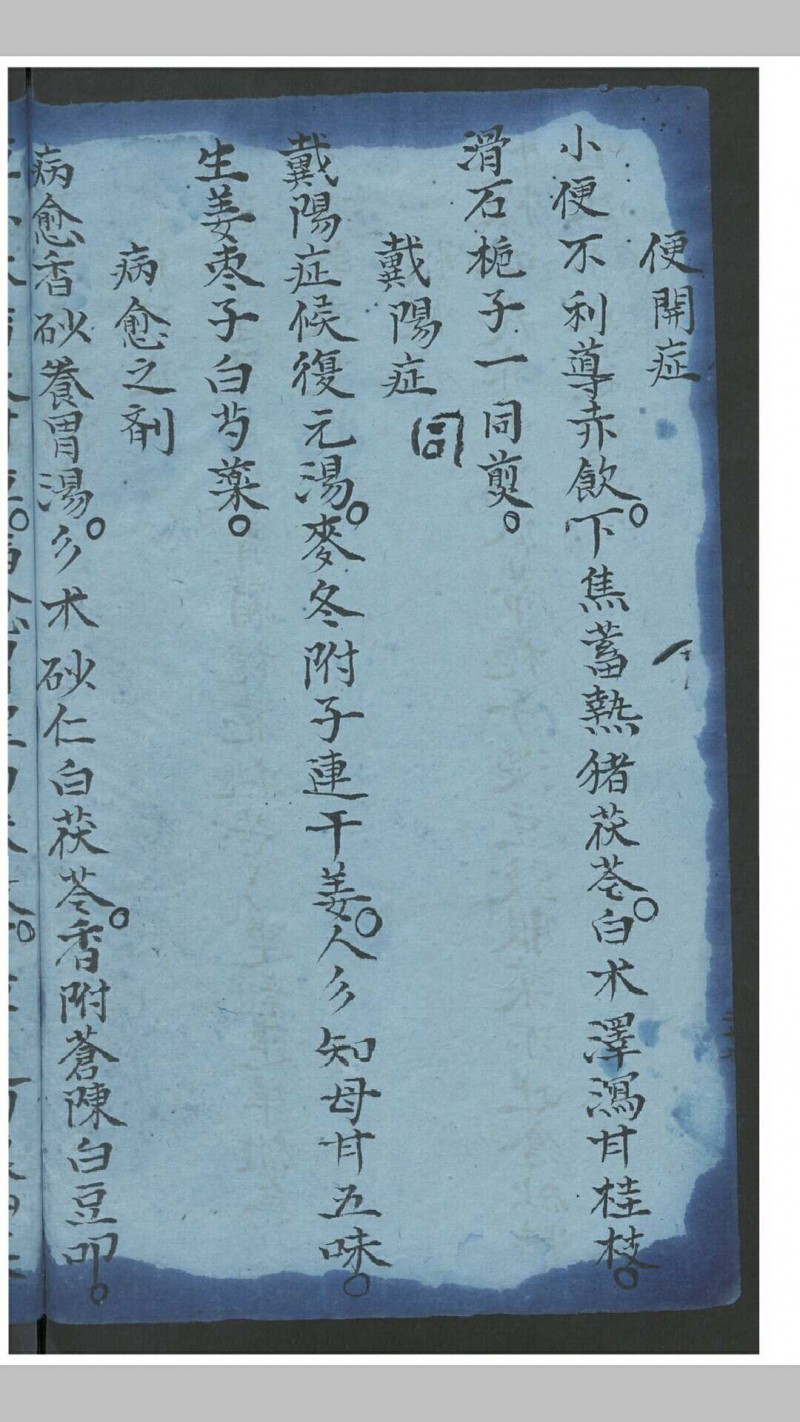 便開症
小便不利導赤飲。下焦蓄熱猪茯苓。白朮澤瀉甘桂枝。
滑石梔子一同煎。
戴陽症
戴陽症候復元湯。麥冬附子連干姜。人彡知母甘五味。
生姜枣子白芍薬。
病愈之剤
病愈香砂养胃湯。彡术砂仁白茯苓。香附蒼陳白豆叩。